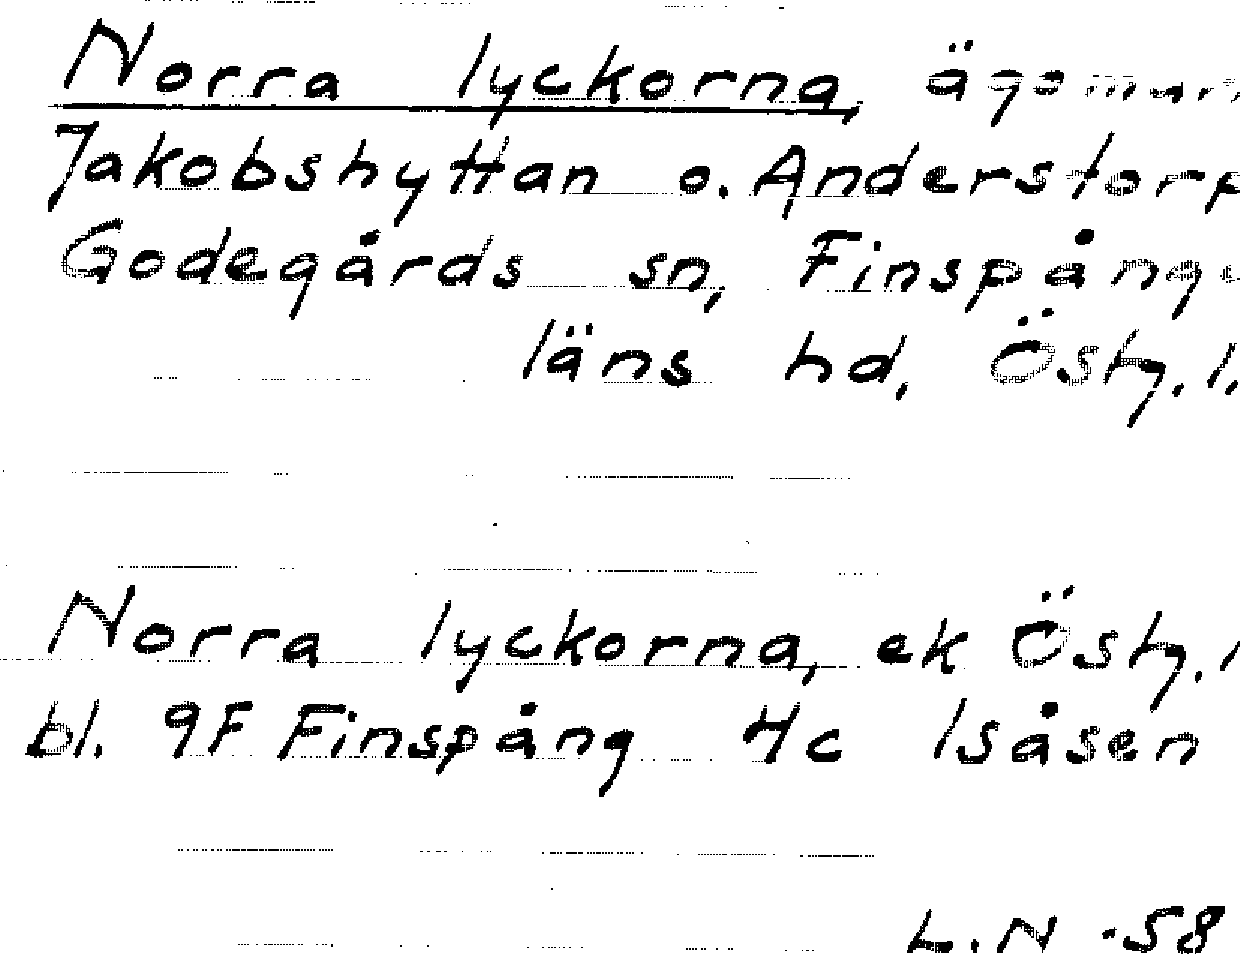 Norra lyckorna, ägomark
Jakobshyttan o. Anderstorp
Godegårds sn, Finspånga
läns hd, Östg. l.
Norra lyckorna, ek Östg. l
bl. 9F Finspång 4c Isåsen
L. N -58